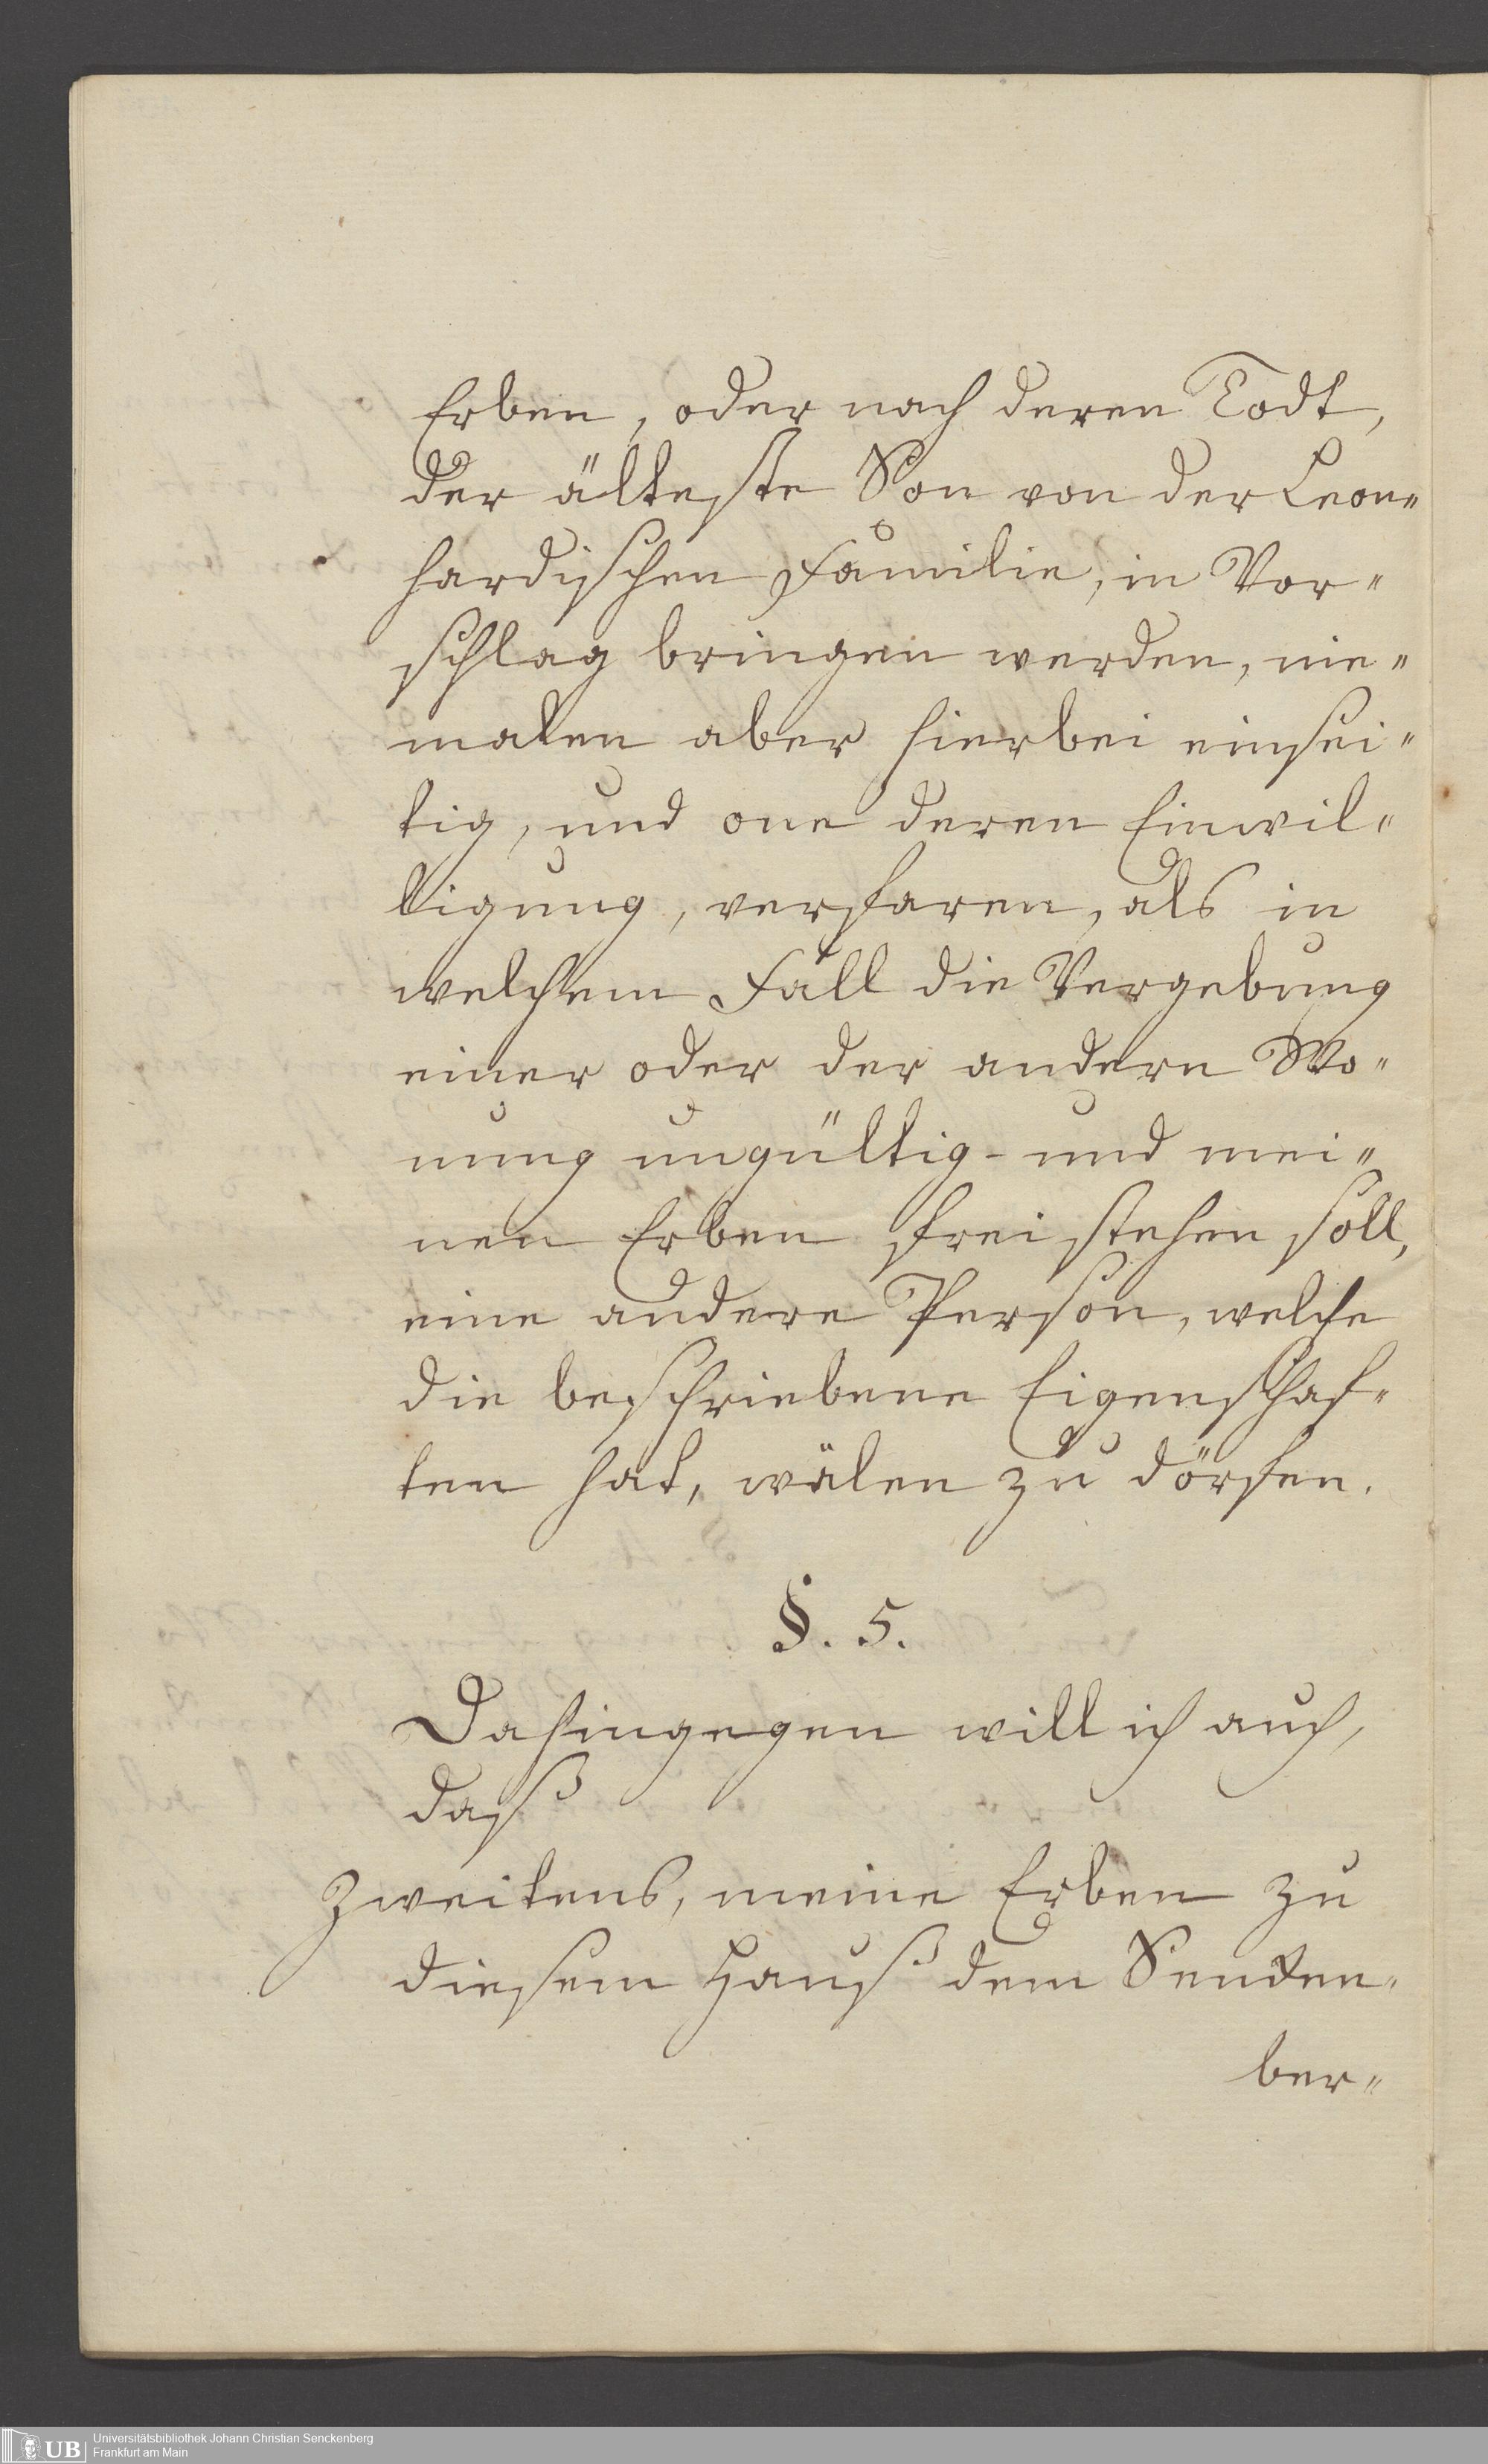 Erben, oder nach deren Todt,
der älteste Son von der Leon=
hardischen Familie, in Vor=
schlag bringen werden, nie=
malen aber hierbei einsei=
tig, und one deren Einwil=
ligung, verfaren, als in
welchem Fall die Vergebung
einer oder der andern Wo=
nung ungültig- und mei=
nen Erben frei stehen soll,
eine andere Person, welche
die beschriebene Eigenschaf=
ten hat, wälen zu dörfen.
§. 5.
Dahingegen will ich auch,
daß
Zweitens, meine Erben zu
diesem Hauß dem Senken=
ber=
UB
Universitätsbibliothek Johann Christian Senckenberg
Frankfurt am Main